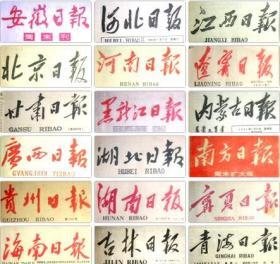 安徽日报
周末刊
河北日报
HEBEI RIBAO
江西日报
JIANGXI RIBAO
北京日报
河南日報
HENAN RIBAO
遼寧日報
LIAONING RIBAO
甘肃日報
GANSU RIBAO
黑龙江日報
内蒙古日報
廣西日報
GVANGJSIH YIZBAU
湖北日報
HUBEI RIBAO
南方日報
周末扩大版
貴州日報
GUIZHOU RIBAO
湖南日報
HUNAN RIBAO
寧夏日報
NINGXIA RIBAO
海南日报
吉林日报
JILIN RIBAO
青海日報
QINGHAI RIBAO